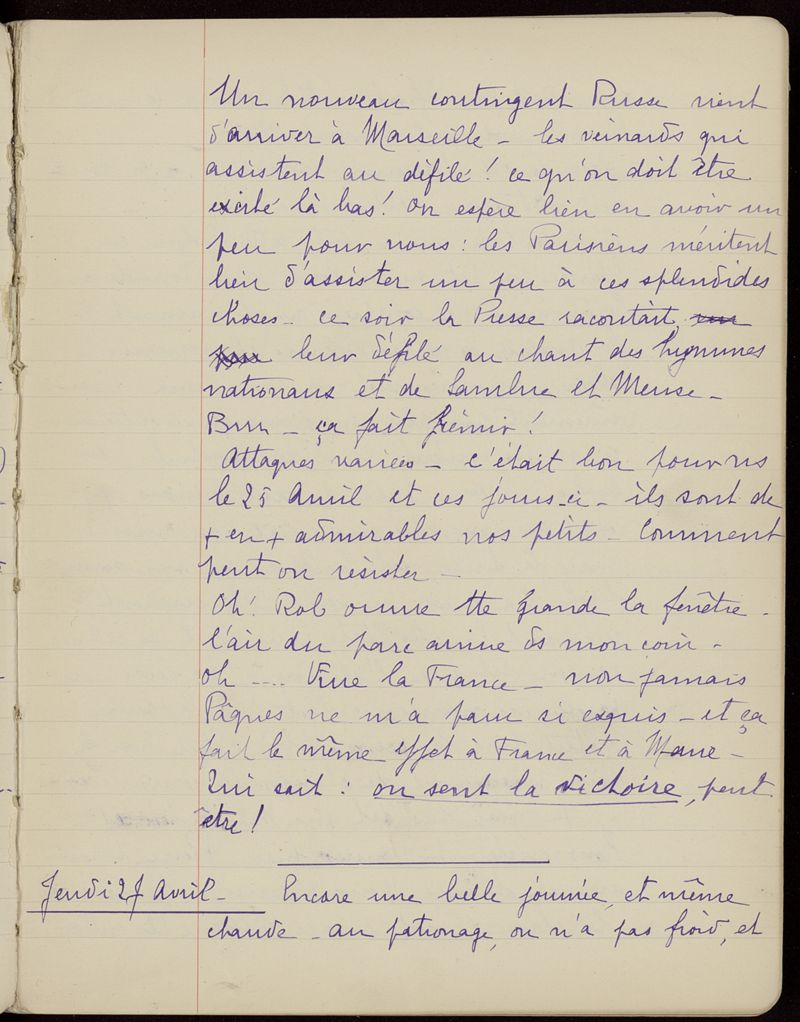 Un nouveau contingent Russe vient
d'arriver à Marseille - les veinards qui
assistent au défilé ! ce qu'on doit être
excité là bas ! On espère bien en avoir un
peu pour nous : les Parisiens méritent
bien d'assister un peu à ces splendides
choses - ce soir la Presse racontait,
leur défilé au chant des hymnes
nationaux et de Sambre et Meuse -
Brrr - ça fait frémir !
Attaques variées - c'était bon pour ns
le 25 Avril et ces jours-ci - ils sont de
+ en + admirables nos petits - Comment
peut on résister -
Oh ! Rob ouvre tte grande la fenêtre -
l'air du parc arrive ds mon coin -
oh .... Vive la France - non jamais
Pâques ne m'a paru si exquis - et ça
fait le même effet à France et à
Qui sait : on sent la victoire, peut
être !
Jeudi 27 Avril - Encore une belle journée, et même
chaude - au patronage, on n'a pas froid, et